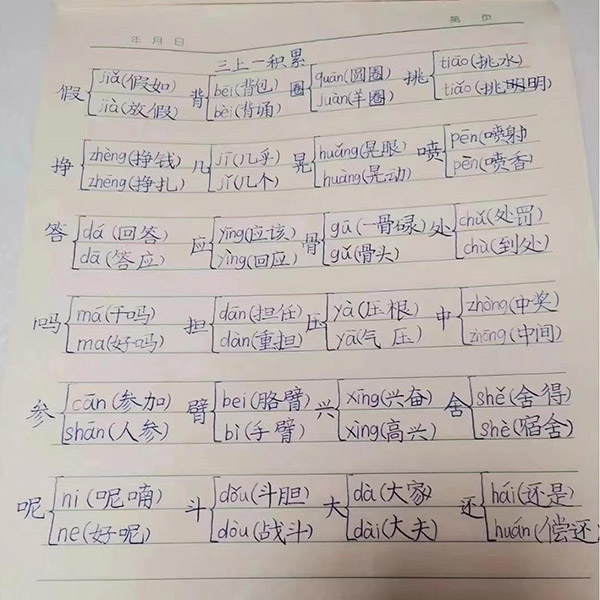 年 月 日 第 页
三上一积累
假 jiǎ(假如) 背 bēi(背包) 圈 quān(圆圈) 挑 tiāo(挑水)
jià(放假) bèi(背诵) juàn(羊圈) tiǎo(挑明)
挣 zhèng(挣钱) 几 jī(几乎) 晃 huǎng(晃眼) 喷 pēn(喷射)
zhēng(挣扎) jǐ(几个) huàng(晃动) pèn(喷香)
答 dá(回答) 应 yīng(应该) 骨 gū(一骨碌) 处 chǔ(处罚)
dā(答应) yìng(回应) gǔ(骨头) chù(到处)
吗 má(干吗) 担 dān(担任) 压 yà(压根) 中 zhòng(中奖)
ma(好吗) dàn(重担) yā(气压) zhōng(中间)
参 cān(参加) 臂 bei(胳臂) 兴 xīng(兴奋) 舍 shě(舍得)
shān(人参) bì(手臂) xìng(高兴) shè(宿舍)
呢 ní(呢喃) 斗 dǒu(斗胆) 大 dà(大家) 还 hái(还是)
ne(好呢) dòu(战斗) dài(大夫) huán(偿还)